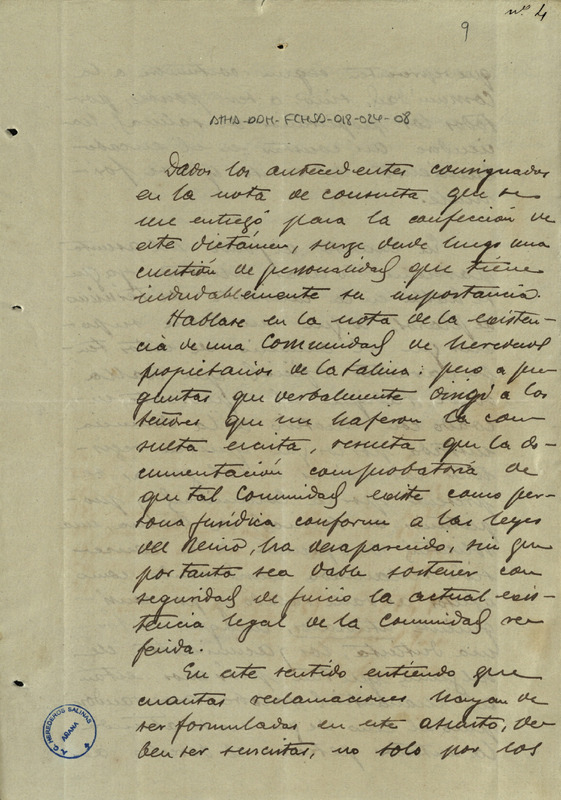 nº 4
9
ATHA-DDH-FCHSD-018-024-08
Dados los antecedentes consignados
en la nota de consulta que se
me entregó para la confección de
este dictámen, surge desde luego una
cuestión de personalidad que tiene
indudablemente su importancia.
Hablase en la nota de la existen-
cia de una Comunidad de herederos
propietarios de la salina: pero a pre
guntas que verbalmente dirigí a los
señores que me hicieron la con
sulta escrita, resulta que la do-
cumentación comprobatoria de
que tal Comunidad existe como per-
sona jurídica conforme a las leyes
del Reino, ha desaparecido, sin que
por tanto sea dable sostener con
seguridad de juicio la actual exis-
tencia legal de la Comunidad re
ferida.
En este sentido entiendo que
cuantas reclamaciones hayan de
ser formuladas en este asunto, de
ben ser suscritas, no solo por los
HEREDEROS SALINAS
AÑANA